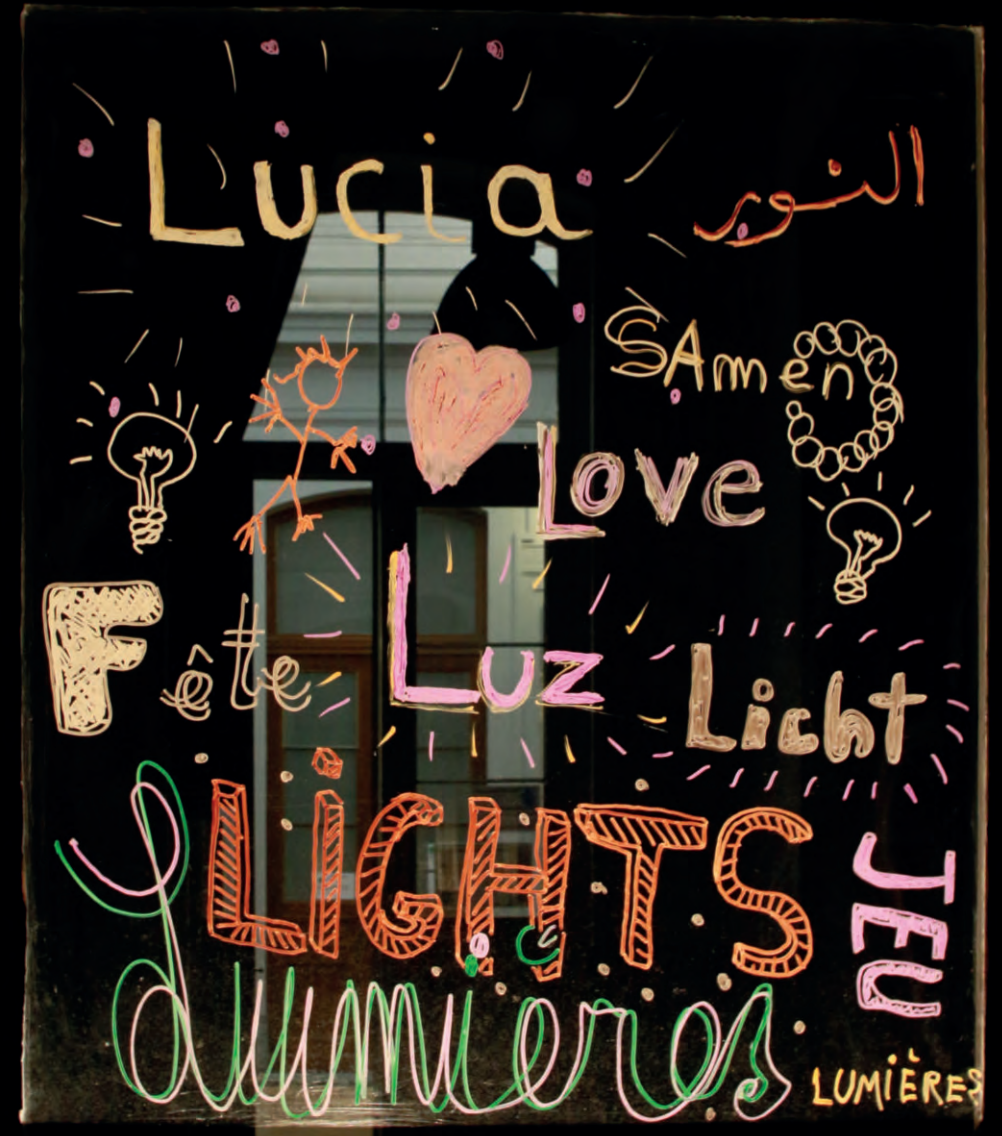 Lucia
النور
SAmen
Love
Fête
Luz
Licht
LiGHTS
JEU
Lumieres
LUMIÈRES